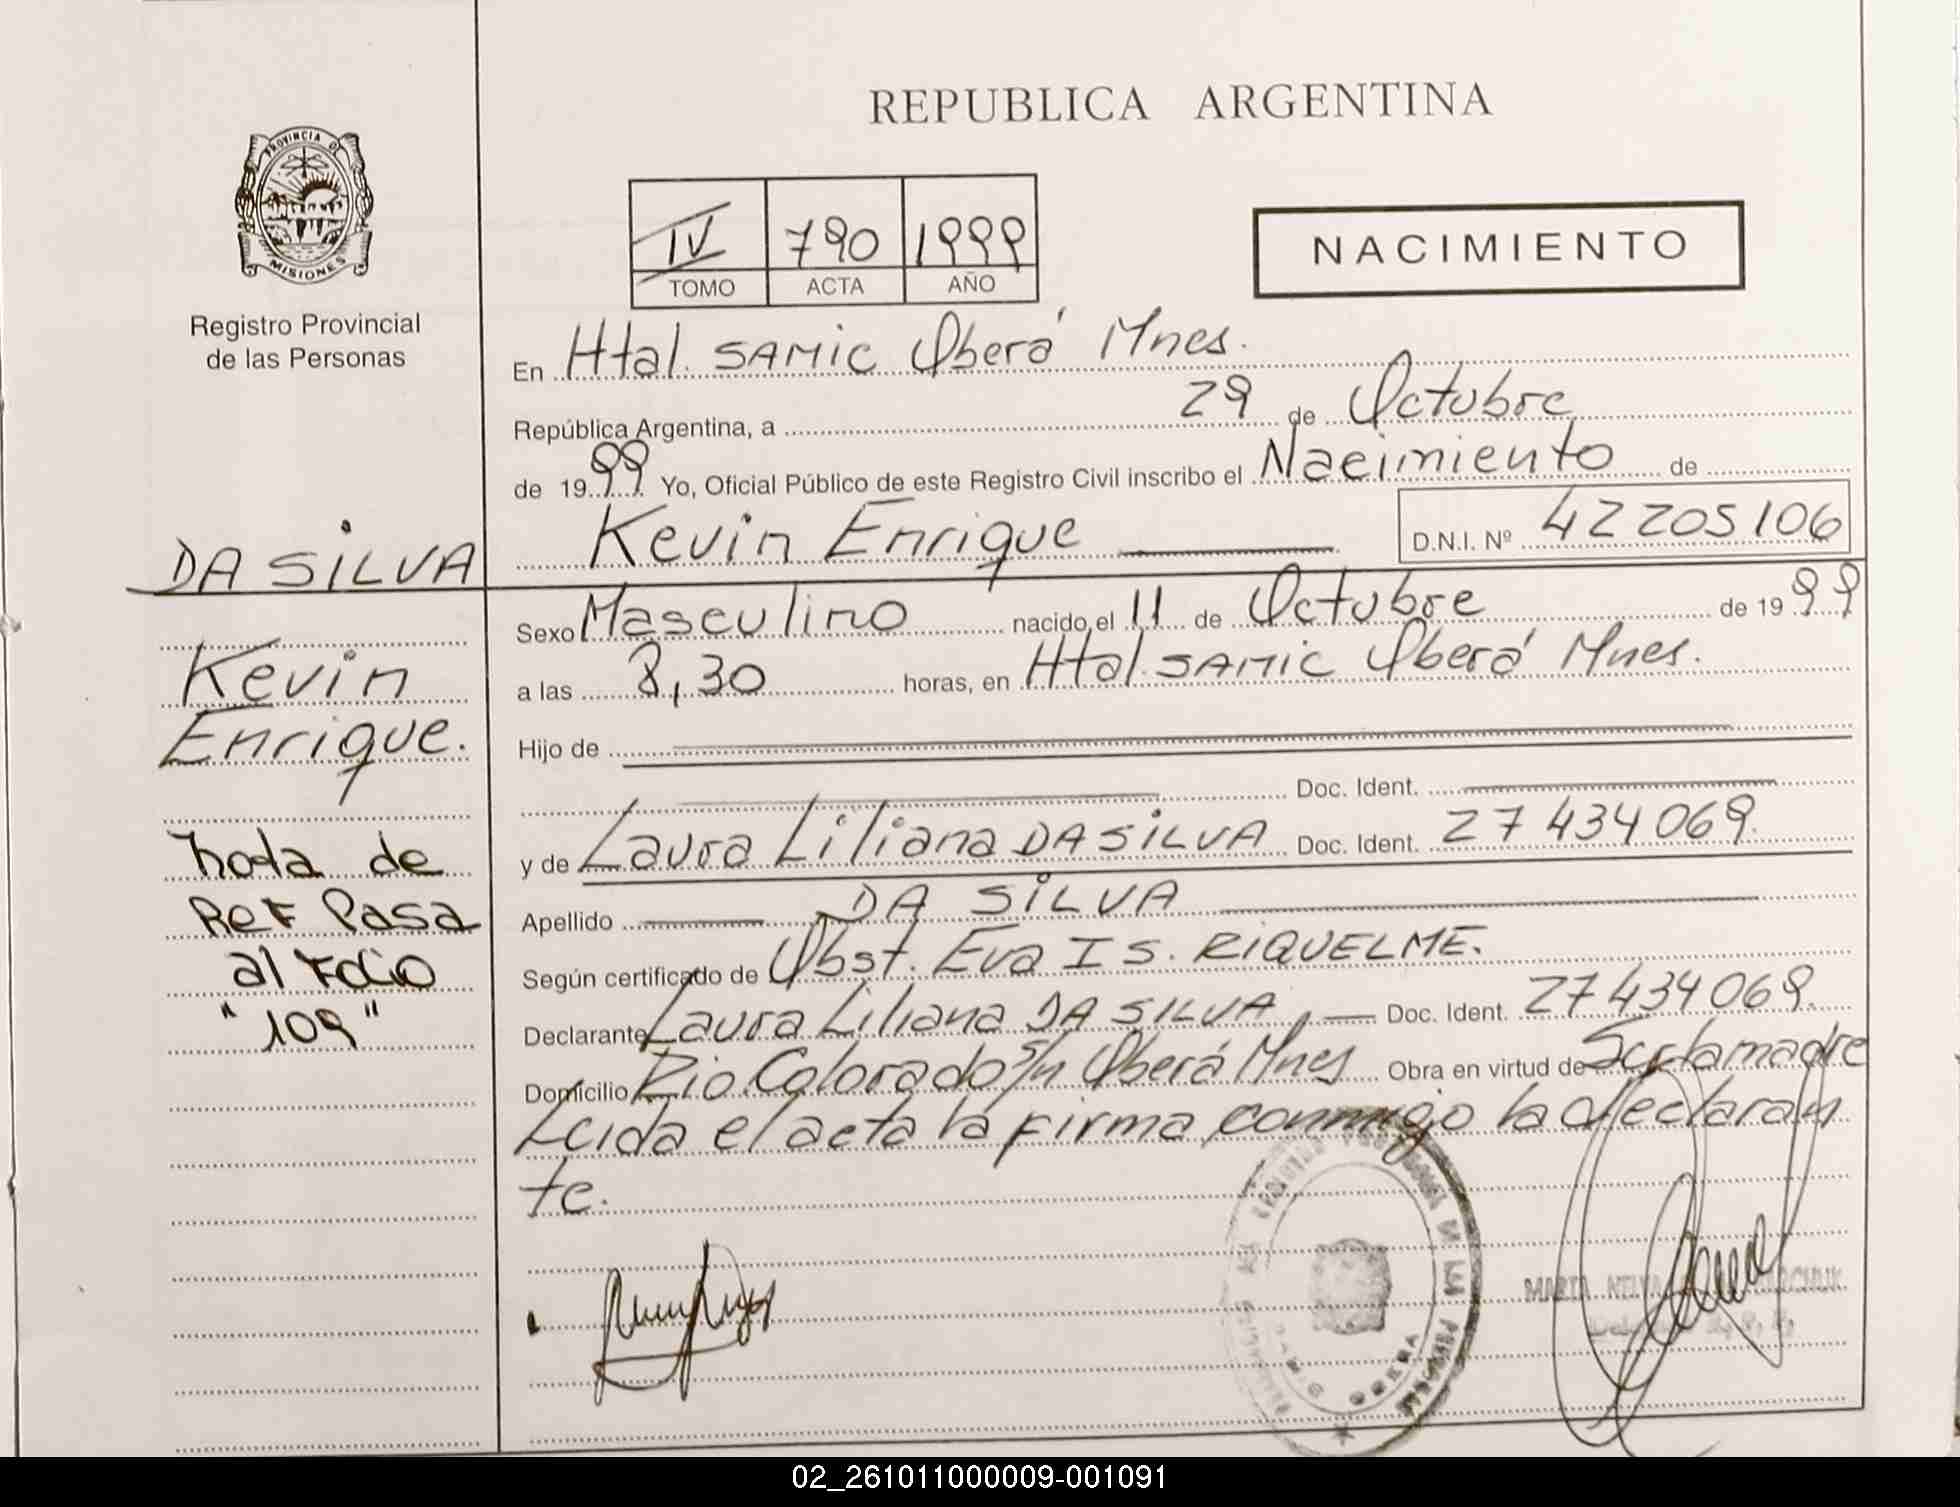 REPUBLICA ARGENTINA
PROVINCIA DE
MISIONES
Registro Provincial
de las Personas
IV 790 1999
TOMO ACTA AÑO
NACIMIENTO
En Htal. SAMIC Oberá Mnes.
República Argentina, a 29 de Octubre
de 1999 Yo, Oficial Público de este Registro Civil inscribo el Nacimiento de
Kevin Enrique D.N.I. Nº 42205106
DA SILVA
Kevin
Enrique.
Nota de
Ref Pasa
al Folio
"109"
Sexo Masculino nacido el 11 de Octubre de 1999
a las 8,30 horas, en Htal. SAMIC Oberá Mnes.
Hijo de
Doc. Ident.
y de Laura Liliana DA SILVA Doc. Ident. 27434069.
Apellido DA SILVA
Según certificado de Obst. Eva I S. RIQUELME.
Declarante Laura Liliana DA SILVA Doc. Ident. 27434069.
Domicilio Rio Colorado s/n Oberá Mnes Obra en virtud de Ser la madre
Leida el acta la firma conmigo la declaran
te.
OBERA
MARTA NELVA
02_261011000009-001091